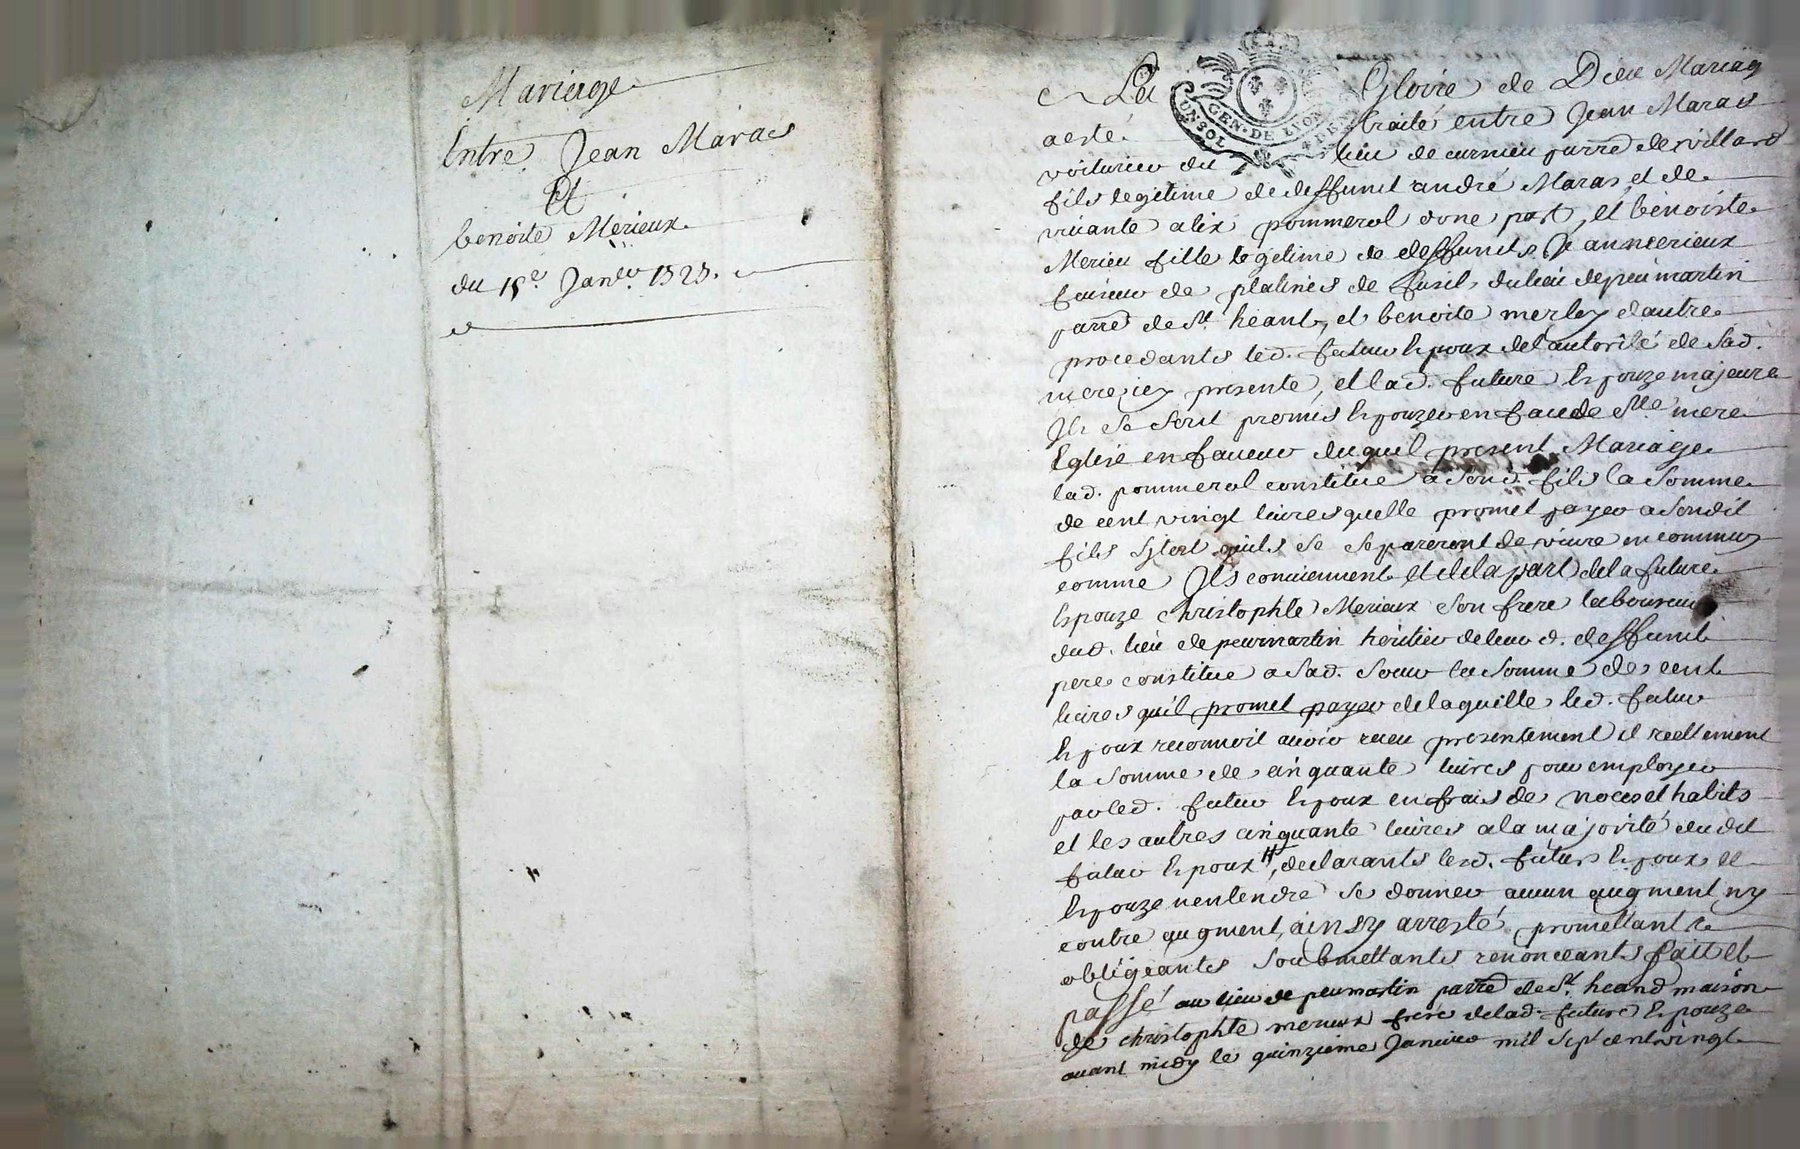 Mariage
Entre Jean Maras
Et
benoite Mérieux
du 15e. Janer. 1525.
A La Gloire de Dieu Mariage
GEN. DE LYON
UN SOL 4 DEN
a esté traité entre Jean Maras
voiturier du lieu de parre de villard
fils legitime de deffunct andré Maras et de
vivante alix pommerol dune part, et benoiste
Merieu fille legitime de deffuncts Jean merieux
faiseur de platines de fusil, du lieu de peumartin
parre de St. heant, et benoite merley dautre
procedants led. futur Epoux de lautorité de sad.
mere icy presente, et lad. future Epouze majeure
Ils se sont promis Epouzer en face de Ste mere
Eglise en faveur duquel present Mariage
lad. pommerol constitue a sond. fils la somme
de cent vingt livres quelle promet payer a sondit
fils sylest quils se separeront de vivre en commun
comme Ils conviennent et de la part de la future
Epouze christophle Merieux son frere laboureur
dud. lieu de peumartin heritier de leur d. deffunct
pere constitue a sad. soeur la somme de cent
livres quil promet payer de laquelle led. futur
Epoux reconnoit avoir receu presentement et reellement
la somme de cinquante livres pour employer
par led. futur Epoux en frais de noces et habits
et les autres cinquante livres a la majorité dudit
futur Epoux #, declarants lesd. futurs Epoux et
Epouze nentendre se donner aucun augment ny
contre augment, ainsy arresté promettant &
obligeants soubmettants renonceants fait et
passé au lieu de peumartin parre de St. heand maison
de christophle merieux frere de lad. future Epouze
avant midy le quinzieme Janvier mil sept cent vingt